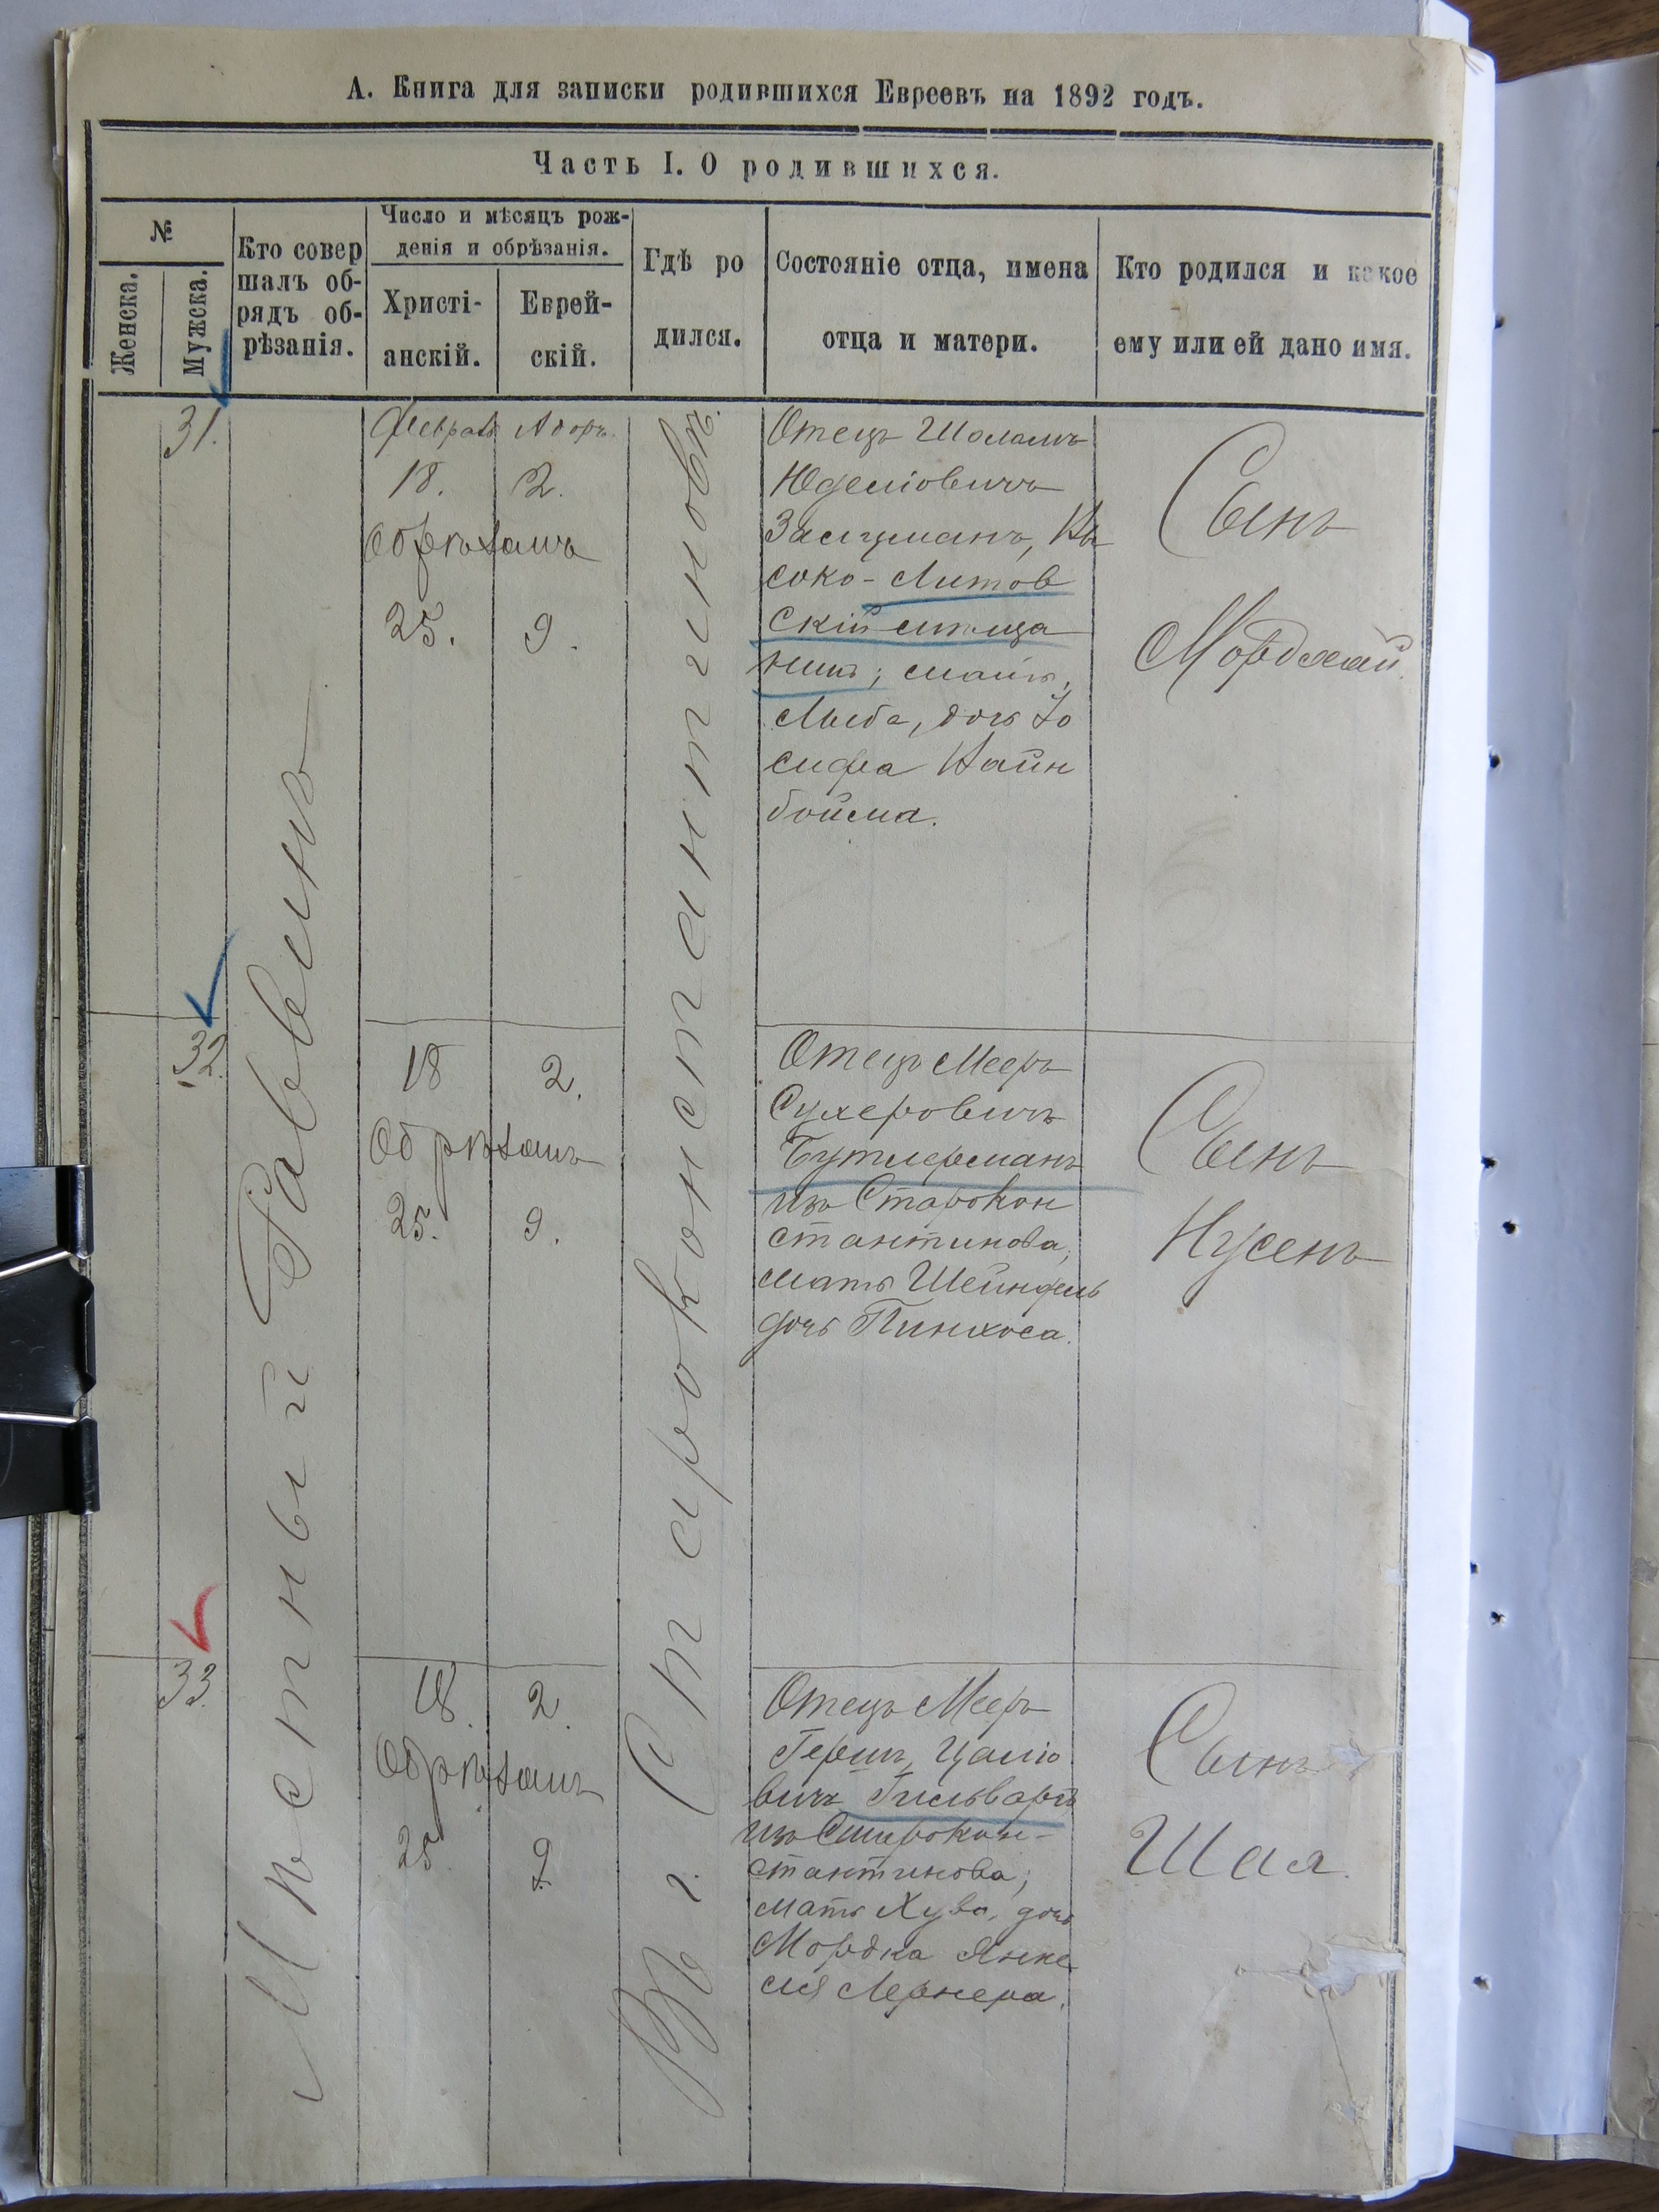 А. Книга для записки родившихся Евреевъ на 1892 годъ.
Часть I. О родившихся.
№
Женска.
Мужска.
Кто совер
шалъ об-
рядъ об-
рѣзанія.
Число и мѣсяцъ рож-
денія и обрѣзанія.
Христі-
анскій.
Еврей-
скій.
Гдѣ ро
дился.
Состояніе отца, имена
отца и матери.
Кто родился и какое
ему или ей дано имя.
Мѣстный Раввинъ
Въ г. Староконстантиновѣ.
31.
Февраль Адоръ.
18. 2.
обрѣзанъ
25. 9.
Отецъ Шоламъ
Юделіовичъ
Залцманъ, Вы
соко-Литов
скій мѣща
нинъ; мать,
дочь Іо
сифа Вайн
бойма.
Сынъ
Мордхай.
32.
18 2.
Обрѣзанъ
25. 9.
Отецъ Мееръ
Сухеровичъ
Бутлерманъ
изъ Старокон
стантинова,
мать Шейндель
дочь Пинхоса.
Сынъ
Нусенъ
33.
18. 2.
Обрѣзанъ
25. 9.
Отецъ Мееръ
Гершъ Цаліо
вичъ
изъ Старокон-
стантинова;
мать Хува, дочь
Мордка Янке
ля Лернера.
Сынъ
Шая.